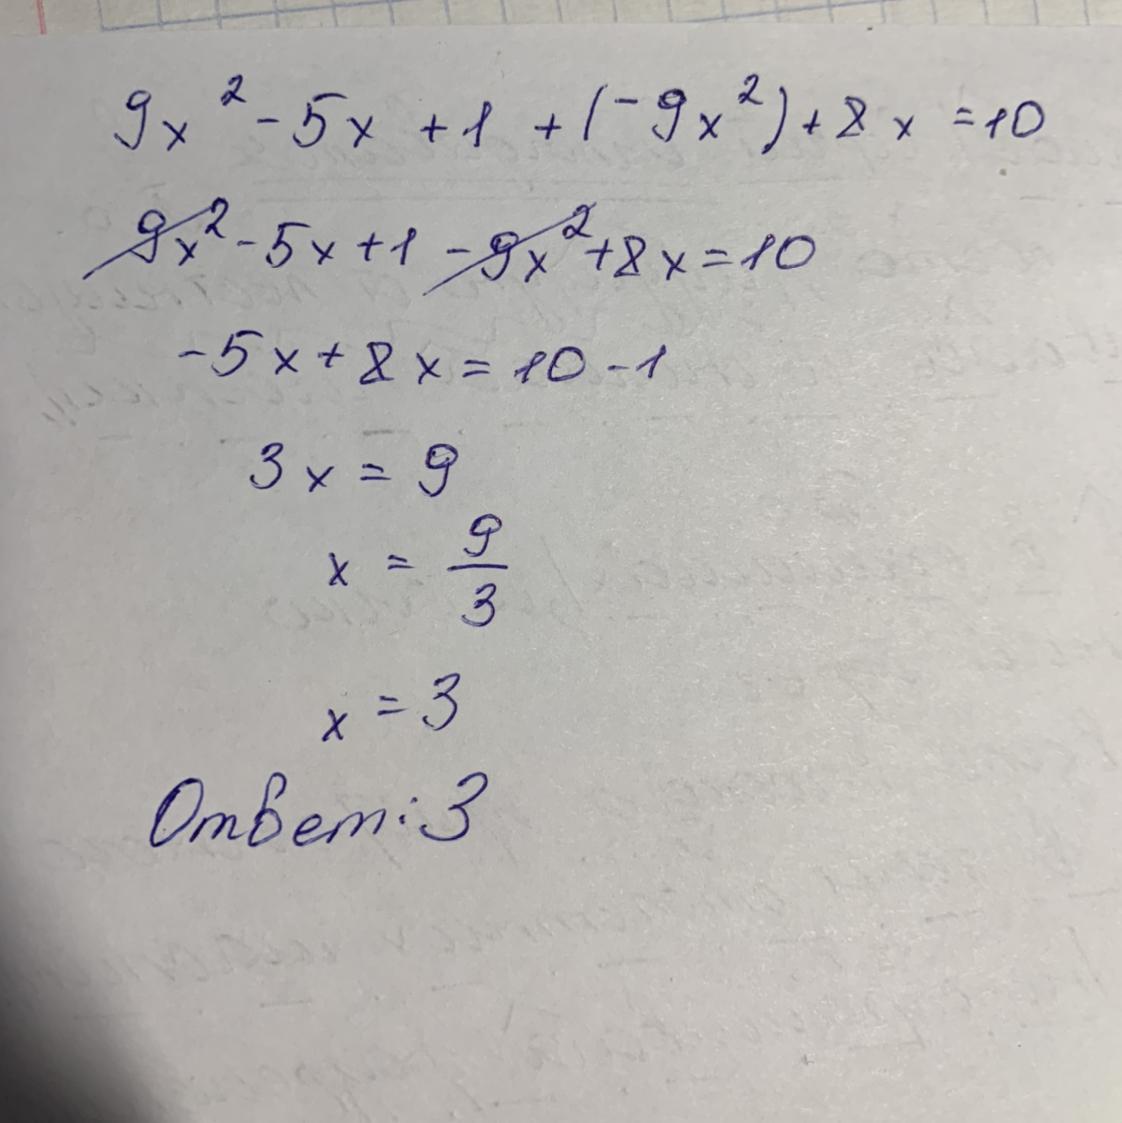 9x² - 5x + 1 + (-9x²) + 8x = 10
9x² - 5x + 1 - 9x² + 8x = 10
-5x + 8x = 10 - 1
3x = 9
x = 9/3
x = 3
Ответ: 3